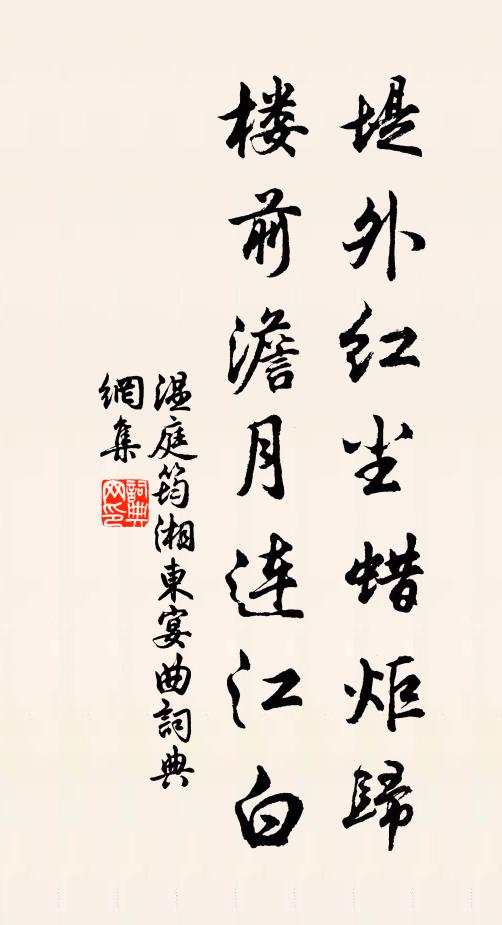 堤外红尘蜡炬歸
楼前澹月连江白
温庭筠湘東宴曲詞典
網集
詞典網印